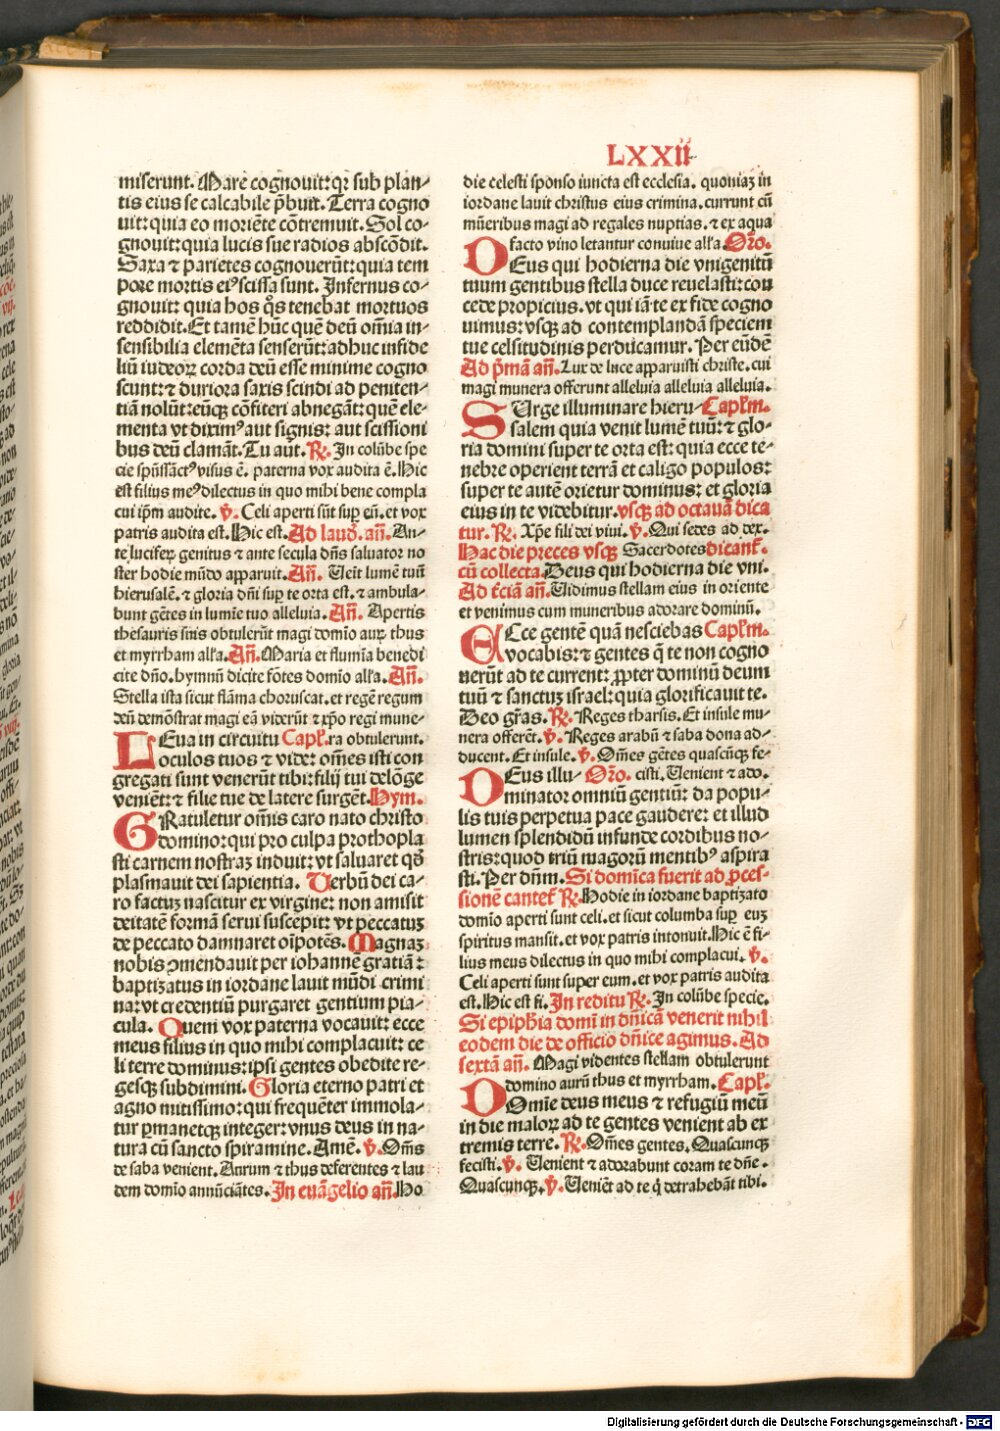 LXXII
miserunt. Mare cognouit: qꝛ sub plan⸗
tis eius se calcabile p̄buit. Terra cogno
uit: quia eo moriēte cōtremuit. Sol co⸗
gnouit: quia lucis sue radios abscōdit.
Saxa ⁊ parietes cognouerūt: quia tem
pore mortis eiꝰ scissa sunt. Infernus co⸗
gnouit: quia hos q̄s tenebat mortuos
reddidit. Et tamē hūc quē deū om̄ia in⸗
sensibilia elemēta senserūt: adhuc infide
liū iudeoꝝ corda deū esse minime cogno
scunt: ⁊ duriora saxis scindi ad peniten⸗
tiā nolūt: eūqꝫ cōfiteri abnegāt: quē ele⸗
menta vt diximꝰ aut signis: aut scissioni
bus deū clamāt. Tu aut. R̷. In colūbe spe
cie spūssāctꝰ visus ē. paterna vox audita ē. Hic
est filius meꝰ dilectus in quo mihi bene compla
cui ip̄m audite. v̷. Celi aperti sūt sup eū. et vox
patris audita est. Hic est. Ad laud̄. an̄. An⸗
te luciferꝫ genitus ⁊ ante secula dn̄s saluator no
ster hodie mūdo apparuit. An̄. Ueīt lumē tuū
hierusalē. ⁊ gloria dn̄i sup te orta est. ⁊ ambula⸗
bunt gētes in lumīe tuo alleluia. An̄. Apertis
thesauris suis obtulerūt magi domīo auꝝ thus
et myrrham all'a. An̄. Maria et flumīa benedi
cite dn̄o. hymnū dicite fōtes domīo all'a. An̄.
Stella ista sicut flāma choruscat. et regē regum
deū demōstrat magi eā viderūt ⁊ xp̄o regi mune⸗
LEua in circuitu Capl'. ra obtulerunt.
oculos tuos ⁊ vide: om̄es isti con
gregati sunt venerūt tibi: filij tui delōge
veniēt: ⁊ filie tue de latere surgēt. Hym.
GRatuletur om̄is caro nato christo
domino: qui pro culpa prothopla
sti carnem nostraꝫ induit: vt saluaret qd̄
plasmauit dei sapientia. Uerbū dei ca⸗
ro factuꝫ nascitur ex virgine: non amisit
deitatē formā serui suscepit: vt peccatuꝫ
de peccato damnaret oīpotēs. Magnaꝫ
nobis ꝯmendauit per iohannē gratiā:
baptizatus in iordane lauit mūdi crimi
na: vt credentiū purgaret gentium pia⸗
cula. Quem vox paterna vocauit: ecce
meus filius in quo mihi complacuit: ce
li terre dominus: ipsi gentes obedite re⸗
gesqꝫ subdimini. Gloria eterno patri et
agno mitissimo: qui frequēter immola⸗
tur ꝑmanetqꝫ integer: vnus deus in na⸗
tura cū sancto spiramine. Amē. v̷. Om̄s
de saba venient. Aurum ⁊ thus deferentes ⁊ lau
dem domīo annūciātes. In euāgelio an̄. Ho
die celesti sponso iuncta est ecclesia. quoniaꝫ in
iordane lauit christus eius crimina. currunt cū
mūeribus magi ad regales nuptias. ⁊ ex aqua
facto vino letantur conuiue all'a. Oro.
DEus qui hodierna die vnigenitū
tuum gentibus stella duce reuelasti: con
cede propicius. vt qui iā te ex fide cogno
uimus: vsqꝫ ad contemplandā speciem
tue celsitudinis perducamur. Per eūdē
Ad p̄mā an̄. Lux de luce apparuisti christe. cui
magi munera offerunt alleluia alleluia alleluia.
SUrge illuminare hieru⸗ Capl'm.
salem quia venit lumē tuū: ⁊ glo⸗
ria domini super te orta est: quia ecce te⸗
nebre operient terrā et caligo populos:
super te autē orietur dominus: et gloria
eius in te videbitur. vsqꝫ ad octauā dica
tur. R̷. Xp̄e fili dei viui. v̷. Qui sedes ad dex.
Hac die preces vsqꝫ Sacerdotes dicant̄.
cū collecta. Deus qui hodierna die vni.
Ad t̄ciā an̄. Uidimus stellam eius in oriente
et venimus cum muneribus adorare dominū.
ECce gentē quā nesciebas Capl'm.
vocabis: ⁊ gentes q̄ te non cogno
uerūt ad te current: ꝓpter dominū deum
tuū ⁊ sanctuꝫ israel: quia glorificauit te.
Deo gr̄as. R̷. Reges tharsis. Et insule mu⸗
nera offerēt. v̷. Reges arabū ⁊ saba dona ad⸗
ducent. Et insule. v̷. Om̄es gētes quascūqꝫ fe⸗
DEus illu⸗ Oro. cisti. Uenient ⁊ ado.
minator omniū gentiū: da popu⸗
lis tuis perpetua pace gaudere: et illud
lumen splendidū infunde cordibus no⸗
stris: quod triū magorū mentibꝰ aspira
sti. Per dn̄m. Si domīca fuerit ad ꝓces⸗
sionē cantet̄ R̷. Hodie in iordane baptizato
domīo aperti sunt celi. et sicut columba sup euꝫ
spiritus mansit. et vox patris intonuit. Hic ē fi⸗
lius meus dilectus in quo mihi complacui. v̷.
Celi aperti sunt super eum. et vox patris audita
est. Hic est fi. In reditu R̷. In colūbe specie.
Si epiph̄ia domī in dn̄icā venerit nihil
eodem die de officio dn̄ice agimus. Ad
sextā an̄. Magi videntes stellam obtulerunt
domino aurū thus et myrrham. Capl'.
DOmīe deus meus ⁊ refugiū meū
in die maloꝝ ad te gentes venient ab ex
tremis terre. R̷. Om̄es gentes. Quascunqꝫ
fecisti. v̷. Uenient ⁊ adorabunt coram te dn̄e.
Quascunqꝫ. v̷. Ueniēt ad te q̄ detrahebāt tibi.
Digitalisierung gefördert durch die Deutsche Forschungsgemeinschaft - DFG